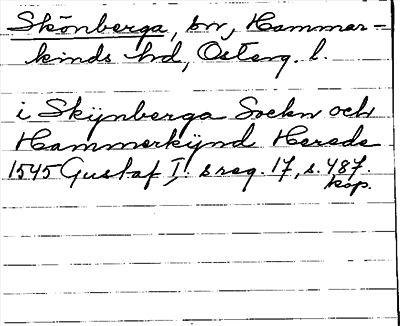 Skönberga, sn, Hammar-
kinds hd, Österg. l.
i Skijnberga Sockn och
Hammerkijnd Herade
1545 Gustaf I:s reg. 17, s. 487.
kop.